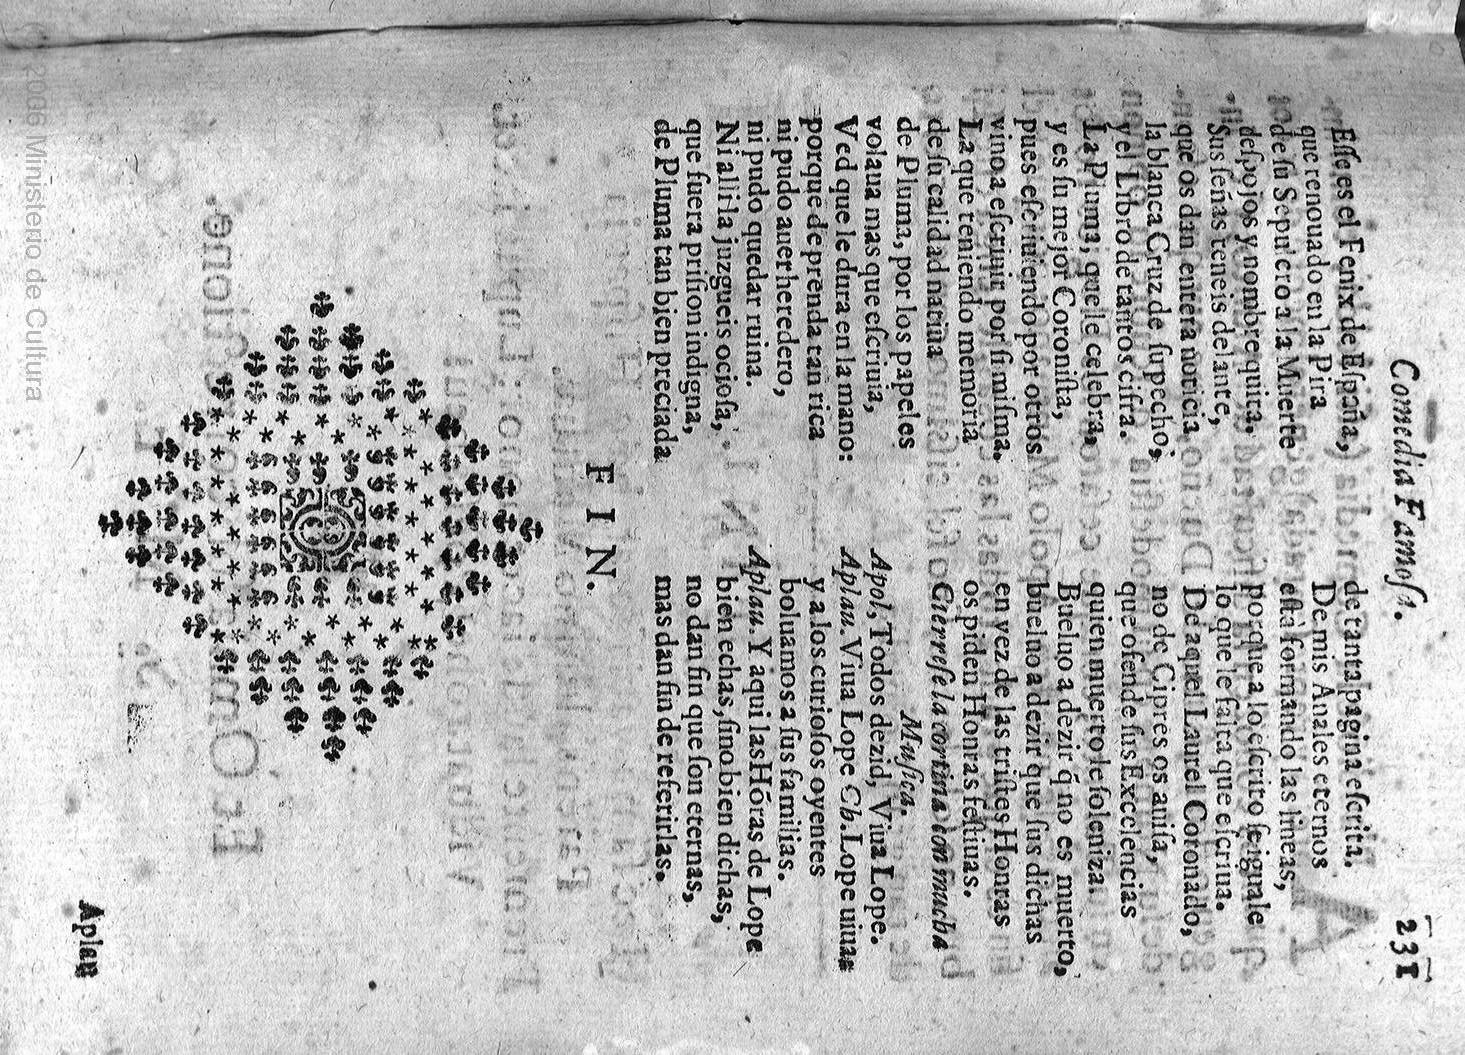 Comedia Famosa.
231
Esse es el Fenix de España,
que renouado en la Pira
de su Sepulcro a la Muerte
despojos y nombre quita.
Sus señas teneis delante,
que os dan entera noticia
la blanca Cruz de su pecho,
y el Libro de tantos cifra.
La Pluma, que le celebra,
y es su mejor Coronista,
pues escriuiendo por otros
vino a escriuir por si misma.
La que teniendo memoria
de su calidad natiua
de Pluma, por los papeles
volaua mas que escriuia,
Ved que le dura en la mano:
porque de prenda tan rica
ni pudo auer heredero,
ni pudo quedar ruina.
Ni alli la juzgueis ociosa,
que fuera prision indigna,
de Pluma tan bien preciada
de tanta pagina escrita.
De mis Anales eternos
está formando las lineas,
porque a lo escrito se iguale
lo que le falta que escriua.
De aquel Laurel Coronado,
no de Cipres os auisa,
que ofende sus Excelencias
quien muerto le soleniza.
Bueluo a dezir q̃ no es muerto,
bueluo a dezir que sus dichas
en vez de las tristes Honras
os piden Honras festiuas.
Cierrese la cortina con mucha
Musica.
Apol, Todos dezid, Viua Lope.
Aplau. Viua Lope Cb. Lope uiua
y a los curiosos oyentes
boluamos a sus familias.
Aplau. Y aqui las Hõras de Lope
bien echas, sino bien dichas,
no dan fin que son eternas,
mas dan fin de referirlas.
FIN.
Aplau
© 2006 Ministerio de Cultura